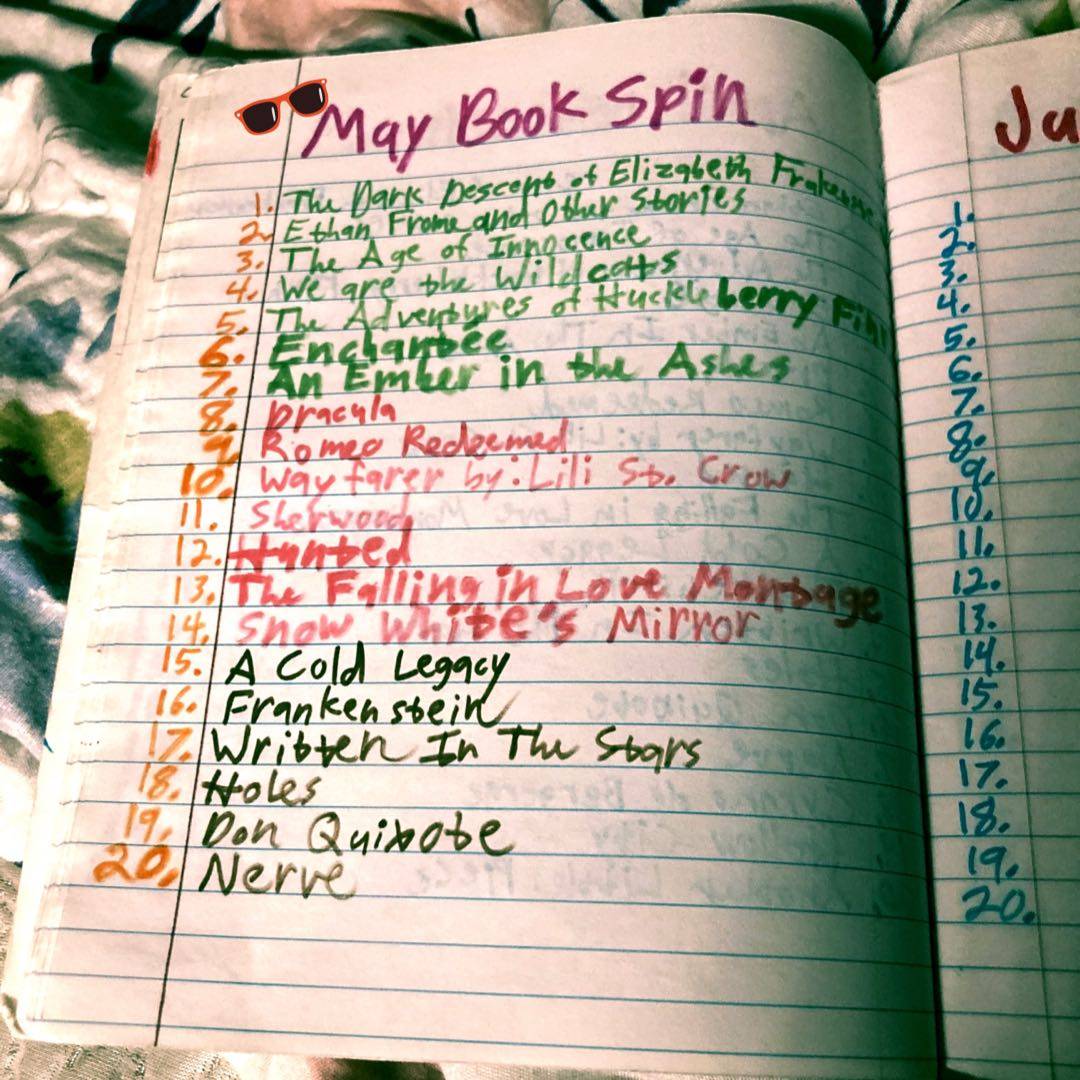 May Book Spin
1. The Dark Descent of Elizabeth
2. Ethan Frome and Other Stories
3. The Age of Innocence
4. We are the Wildcats
5. The Adventures of Huckleberry
6. Enchantée
7. An Ember in the Ashes
8. Dracula
9. Romeo Redeemed
10. Wayfarer by: Lili St. Crow
11. Sherwood
12. Hunted
13. The Falling in Love Montage
14. Snow White's Mirror
15. A Cold Legacy
16. Frankenstein
17. Written In The Stars
18. Holes
19. Don Quixote
20. Nerve
Ju
1.
2.
3.
4.
5.
6.
7.
8.
9.
10.
11.
12.
13.
14.
15.
16.
17.
18.
19.
20.